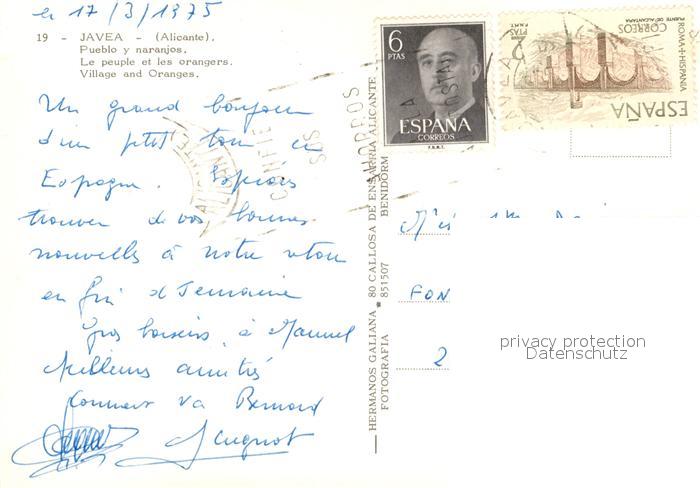 17/3/1975
19 - JAVEA - (Alicante).
Pueblo y naranjos.
Le peuple et les orangers.
Village and Oranges.
Un grand bonjour
d'un petit tour en
Espagne. Espérons
trouver de vos bonnes
nouvelles à notre retour
en fin de semaine
Gros baisers à Manuel
Meilleures amitiés
Bernard
6
PTAS
ESPAÑA
CORREOS
F.N.M.T.
2
PTAS
CORREOS
PUENTE DE ALCANTARA
ROMA+HISPANIA
ESPAÑA
HERMANOS GALIANA * 80 CALLOSA DE ENSARRIA ALICANTE
FOTOGRAFIA 851507 BENIDORM
FON
2
privacy protection
Datenschutz